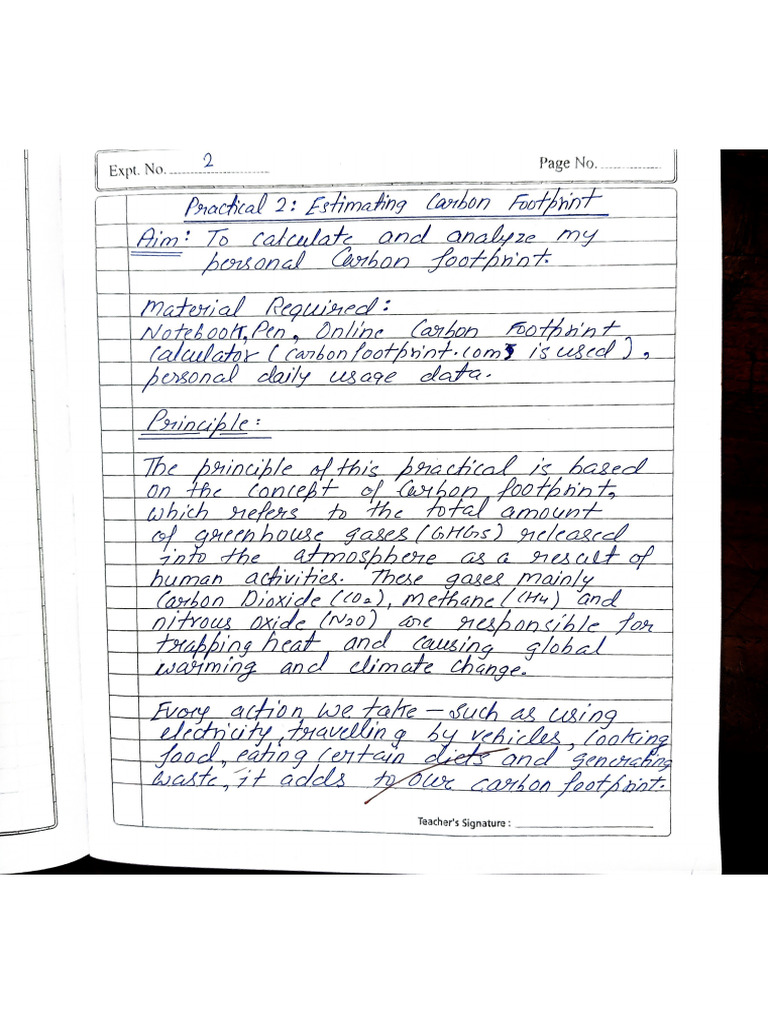 Expt. No. 2
Page No.
Practical 2: Estimating Carbon Footprint
Aim: To calculate and analyze my
personal Carbon footprint.
Material Required:
Notebook, Pen, Online Carbon Footprint
calculator (carbonfootprint.com is used),
personal daily usage data.
Principle:
The principle of this practical is based
on the concept of Carbon footprint,
which refers to the total amount
of greenhouse gases (GHGs) released
into the atmosphere as a result of
human activities. These gases mainly
Carbon Dioxide (CO2), Methane (CH4) and
nitrous oxide (N2O) are responsible for
trapping heat and causing global
warming and climate change.
Every action we take – such as using
electricity, travelling by vehicles, cooking
food, eating certain diets and generating
waste, it adds to our carbon footprint.
Teacher's Signature :